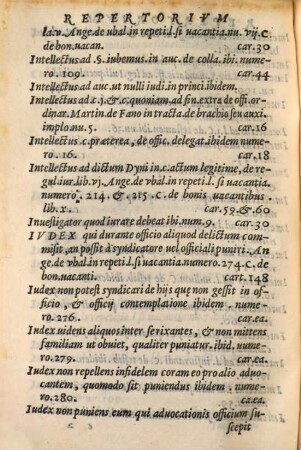 REPERTORIVM
la.v. Ange. de vbal. in repeti.l. si uacantia. nu. vij. C.
de bon. uacan. car.30
Intellectus ad .§. iubemus in auc. de colla. ibi. nume-
ro. 109. car.44
Intellectus ad auc. ut nulli iudi. in princi. ibidem.
Intellectus ad c.j. & .c. quoniam. ad fin. extra de offi. or-
dinar. Martin. de Fano in tracta. de brachio seu auxi.
implo. nu.5. car.16
Intellectus c. præterea, de offic. delegat. ibidem nume-
ro. 16. car.18
Intellectus ad dictum Dyni in.c. actum legitime, de re-
gul. iur. lib. vj. Ange. de vbal. in repeti.l. si uacantia.
numero. 214. & .215. C. de bonis uacantibus.
lib.x. car.59. & .60
Inuestigator quod iurare debeat ibi. num.9. car.31
IVDEX qui durante officio aliquod delictum com-
misit, an possit à syndicatore uel officiali puniri. An-
ge. de vbal. in repeti.l. si uacantia. numero. 274. C. de
bon. uacanti. cart.148
Iudex non potest syndicari de hijs quæ non gessit in of-
ficio, & officij contemplatione ibidem. nume-
ro. 276. car.ea.
Iudex uidens aliquos inter se rixantes, & non mittens
familiam ut obuiet, qualiter puniatur. ibid. nume-
ro.279. car.ea.
Iudex non repellens infidelem coram eo pro alio aduo-
cantem, quomodo sit puniendus ibidem. nume-
ro.280. car.ea.
Iudex non puniens eum qui aduocationis officium su-
c 2 scepit